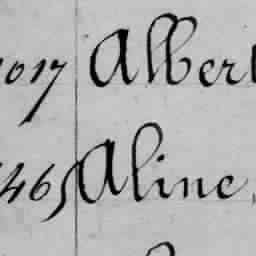 1017 Albert
1465 Aline,